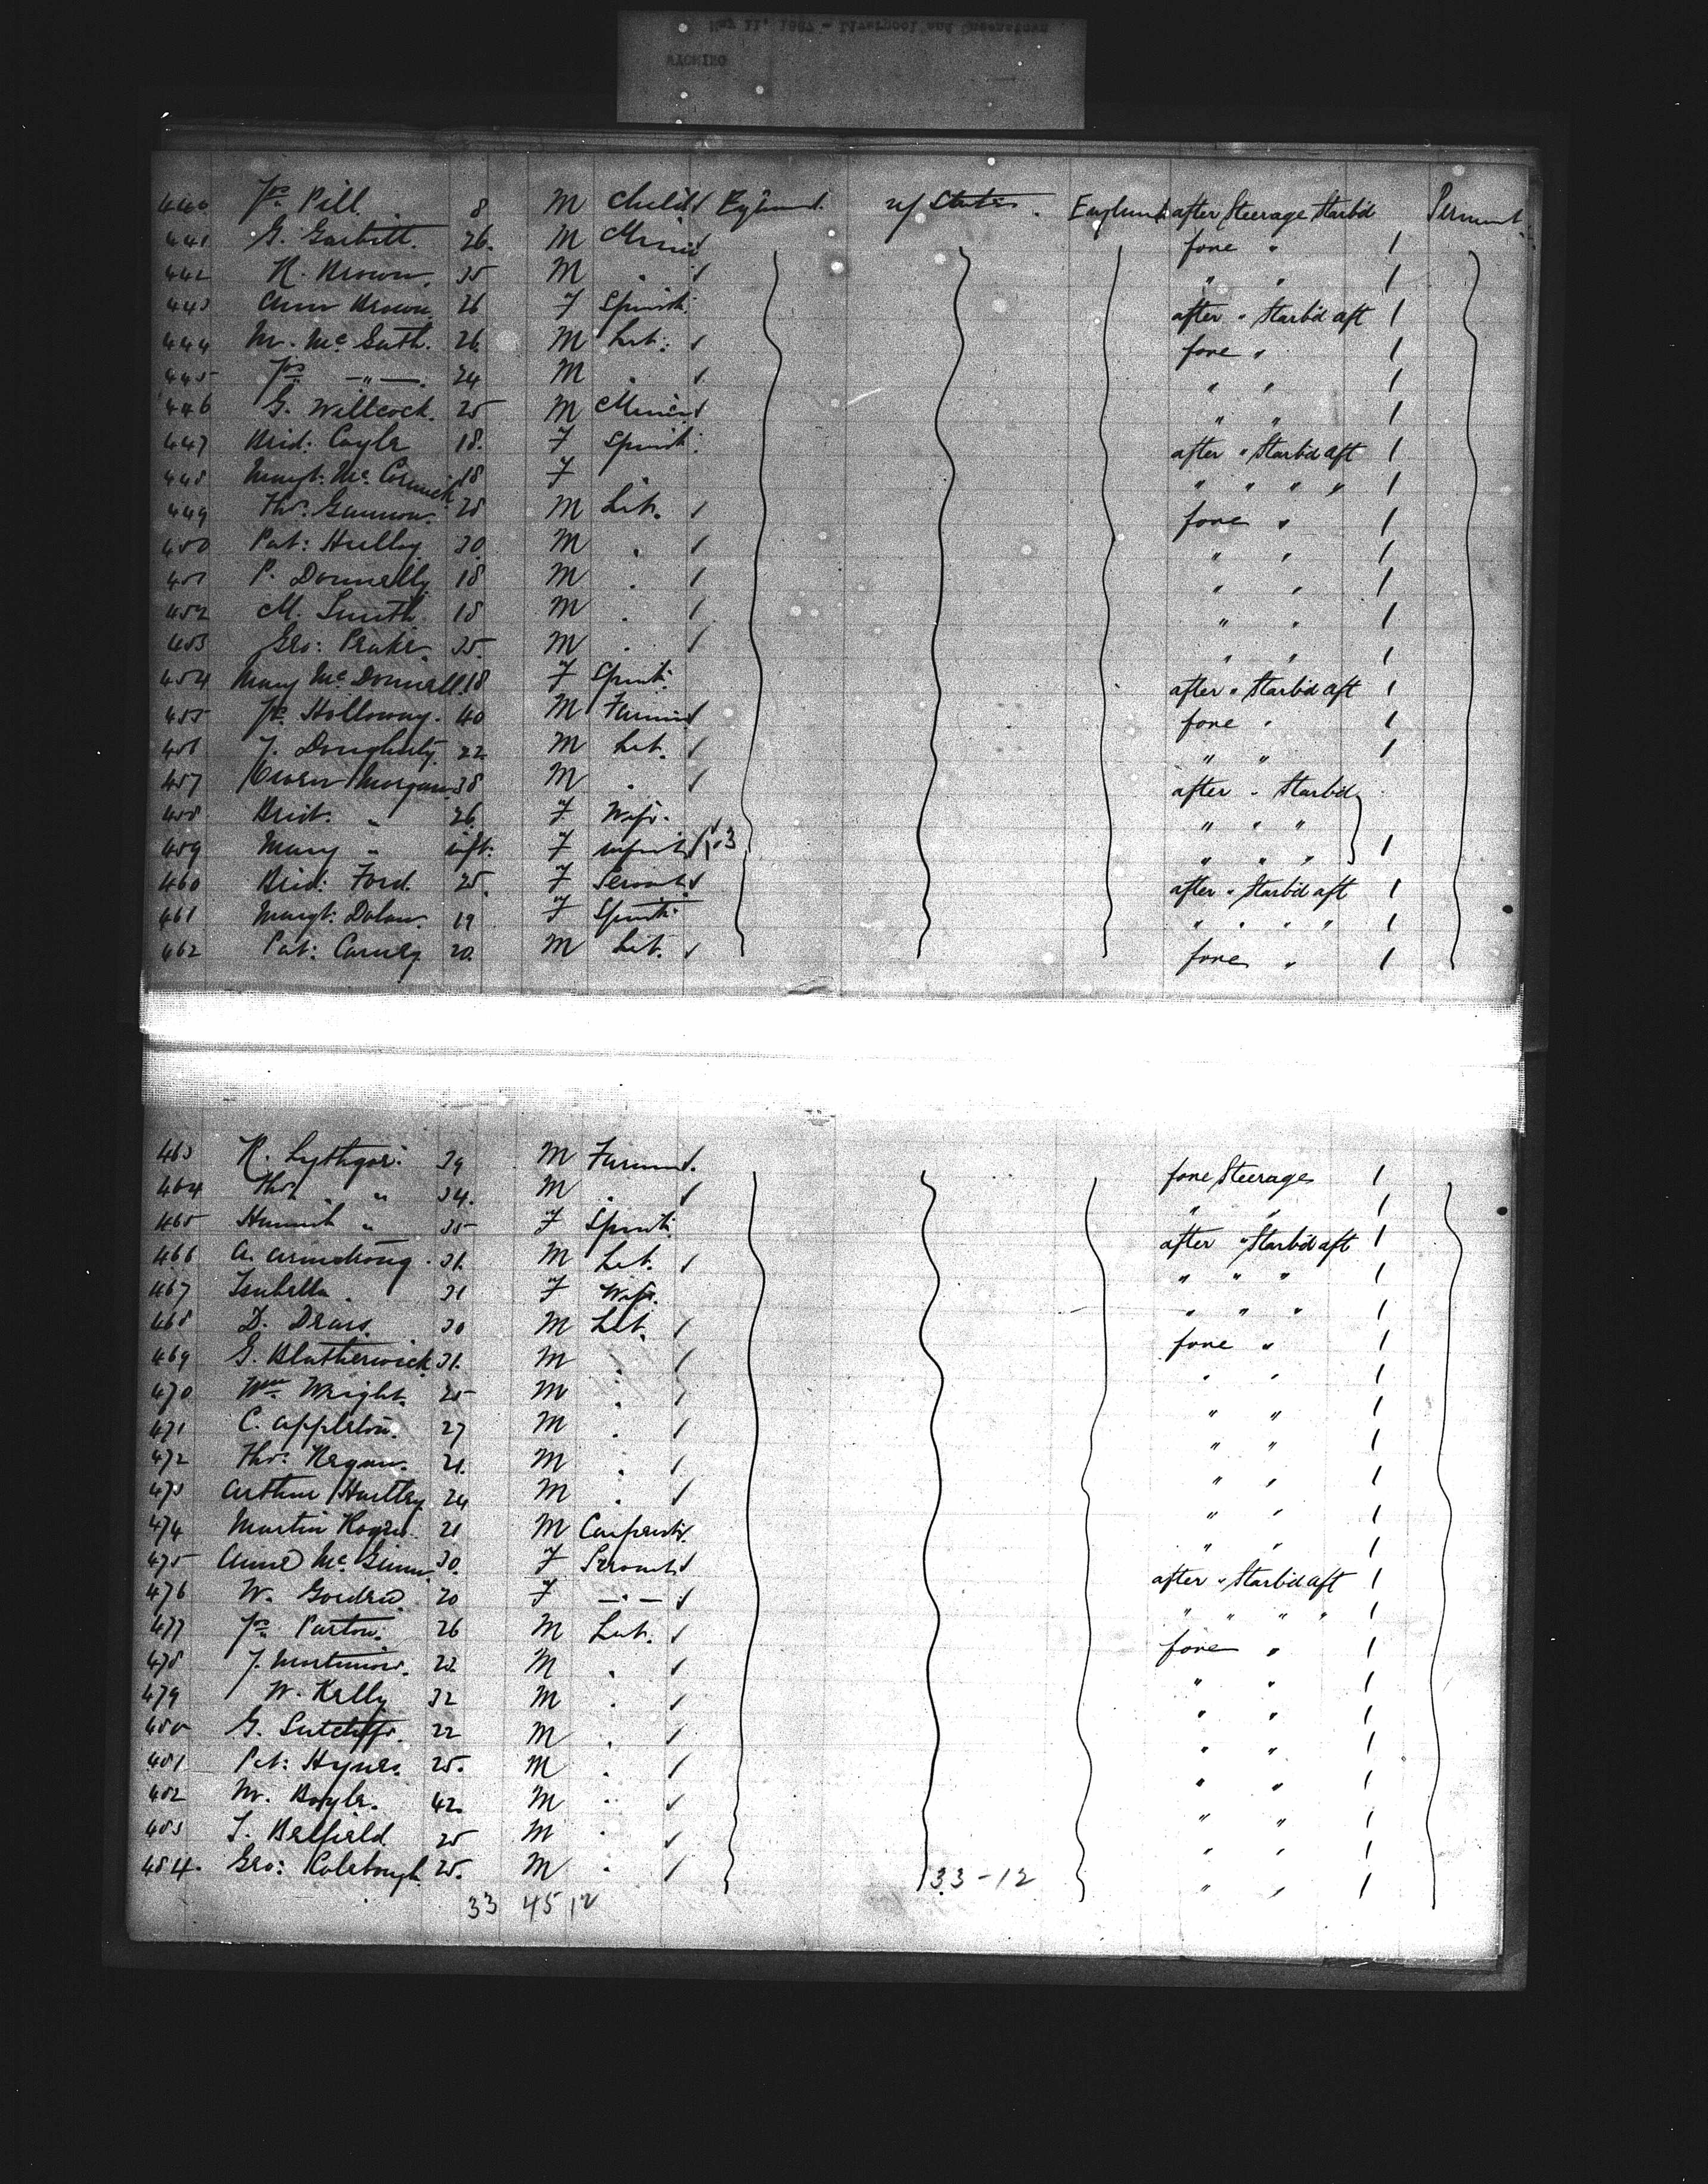 May 11, 1887 - Liverpool and Queenstown
WYOMING
440 Jas Pill. 8 M Child England. U/States. England after Steerage Starb'd Permnt.
441 G. Garbitt. 26. M Miner fore " 1
442 R. Brown. 35 M " " " 1
443 Ann Brown. 26 F Spinst: after " Starb'd aft 1
444 M. Mc Gath. 26 M Lab: fore " 1
445 Jas —"—. 24 M " " " 1
446 G. Willcock. 25 M Miner " " 1
447 Brid: Coyle 18. F Spinst: after " Starb'd aft 1
448 Margt: Mc Cormick 18 F " " " " " 1
449 Thos. Gannon. 25 M Lab. fore " 1
450 Pat: 30. M " " " 1
451 P. Donnelly 18 M " " " 1
452 M. Smith. 18 M " " " 1
453 Geo: Peake. 35. M " " " 1
454 Mary McDonnell. 18 F Spinst: after " Starb'd aft 1
455 Holloway. 40 M Farmer fore " 1
456 J. Dougherty. 22 M Lab. " " 1
457 Owen Morgan 38 M " after " Starb'd
458 Brid. " 26 F Wife. " " "
459 Mary " inft: F infant 3 " " " 1
460 Brid: Ford. 25. F Servant after " Starb'd aft 1
461 Margt: Dolan. 19 F Spinst: " " " " 1
462 Pat: Carney 20. M Lab. fore " 1
463 R. Lythgoe. 39 M Farmer. fore Steerage 1
464 Thos " " 34. M " " " 1
465 Hannah " 35 F Spinst: after " Starb'd aft 1
466 A. Armstrong. 31. M Lab. " " " 1
467 Isabella " 31 F Wife. " " " 1
468 D. 30 M Lab. fore " 1
469 G. Blatherwick 31. M " " " 1
470 Wm Wright. 25 M " " " 1
471 C. Appleton. 27 M " " " 1
472 Thos. Regan. 21. M " " " 1
473 Arthur Hartley 24 M " " " 1
474 Martin 21 M Carpenter " " 1
475 Anne Mc Ginn 30. F Servant after " Starb'd aft 1
476 W. 20 F —"— " " " " 1
477 Jas Parton. 26 M Lab. fore " 1
478 J. 22. M " " " 1
479 W. Kelly 32 M " " " 1
480 G. Sutcliffe. 22 M " " " 1
481 Pat: Hynes. 25. M " " " 1
482 M. Boyle. 42. M " " " 1
483 T. Belfield 25 M " " " 1
484. Geo: 25. M " 33-12 " " 1
33 45 12